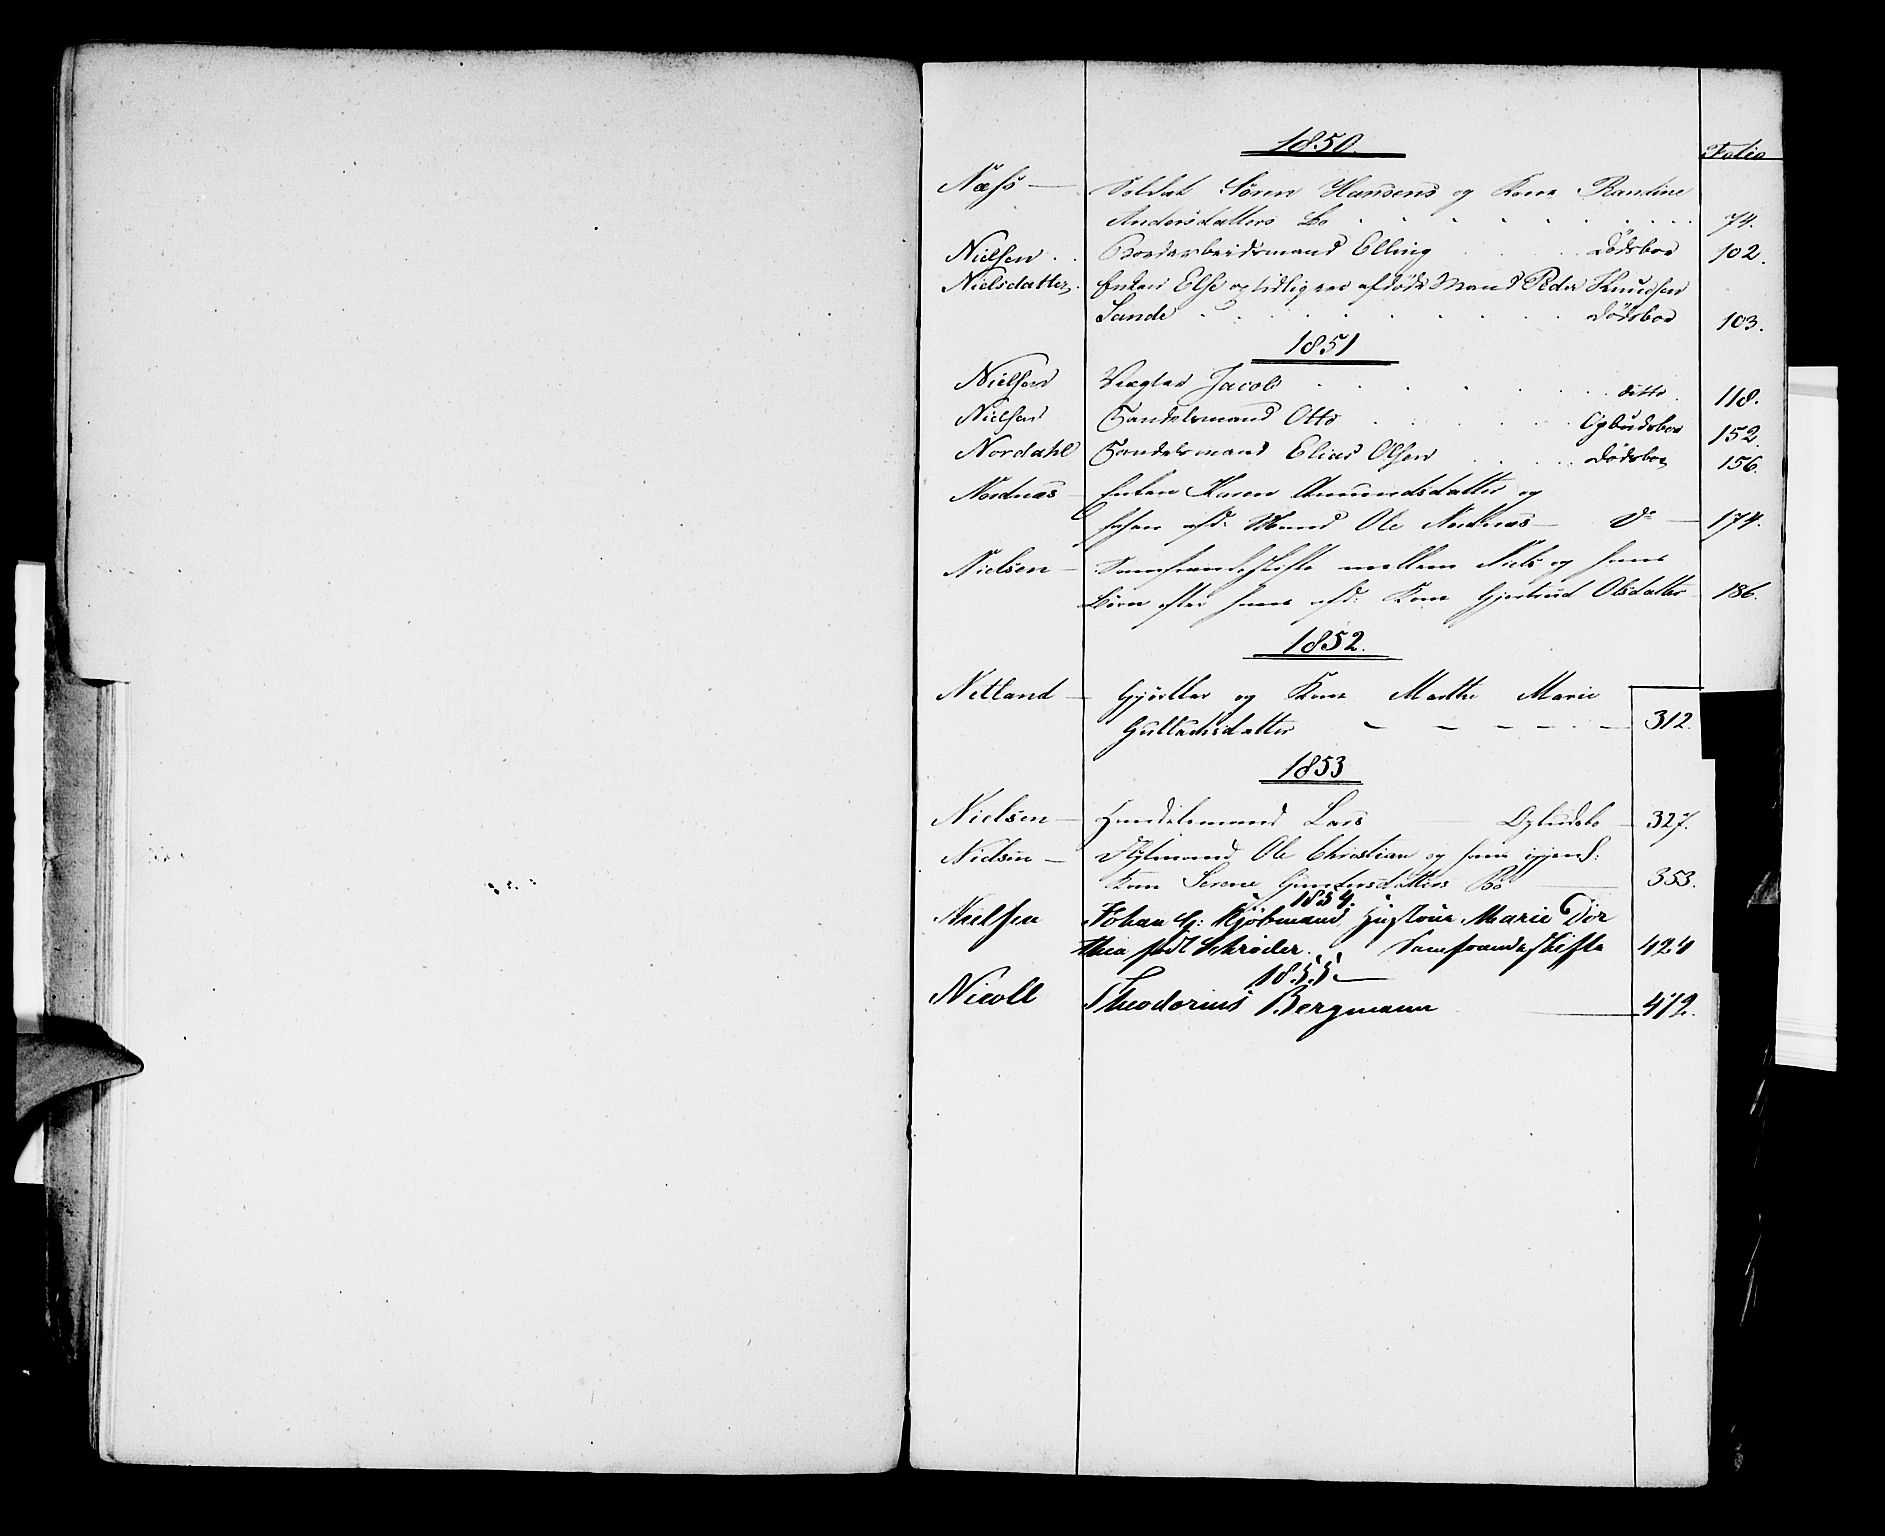 1850.
Folio
Næss — Soldat Sören Hansens og Kone Rantine
Andersdatters Bo . . . . . . . . 74.
Nielsen . . Bordarbeidsmand Elling . . . Dödsboe 102.
Nielsdatter. Enken Else og tidligere afdöde Mand Peder Knudsen
Sande . . . . . . . . Dödsboe 103.
1851
Nielsen Vægter Jacob . . . . . ditto 118.
Nielsen Handelsmand Otto . . . . . Opbudsboe 152.
Nordahl Handelsmand Elias Olsen . . . Dödsboe 156.
Nordnæs — Enken Karen Amundsdatter og
hendes afd: Mand Ole Nordnæs — Do — 174.
Nielsen — Samfrændeskifte mellem Niels og hans
Börn efter hans afd: Kone Gjertrud Olsdatter 186.
1852.
Netland — og Kone Marthe Marie
Gullachsdatter — — — — — 312.
1853
Nielsen — Handelsmand Lars — Opbudsbo — 327.
Nielsen — Ole Christian og hans igjenl:
Kone Serene Gundersdatters Bo — 353.
1854.
Nielsen Johan Kjöbmand, Hustrue Marie Dor
thea födt Schröder. Samfrændeskifte 424
1855. —
Nicoll Theodorius Bergmann — 472.